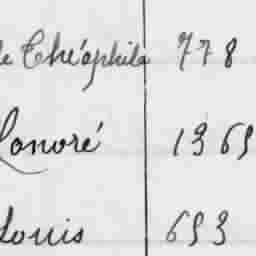 de Théophila 778
Honoré 1369
Louis 693